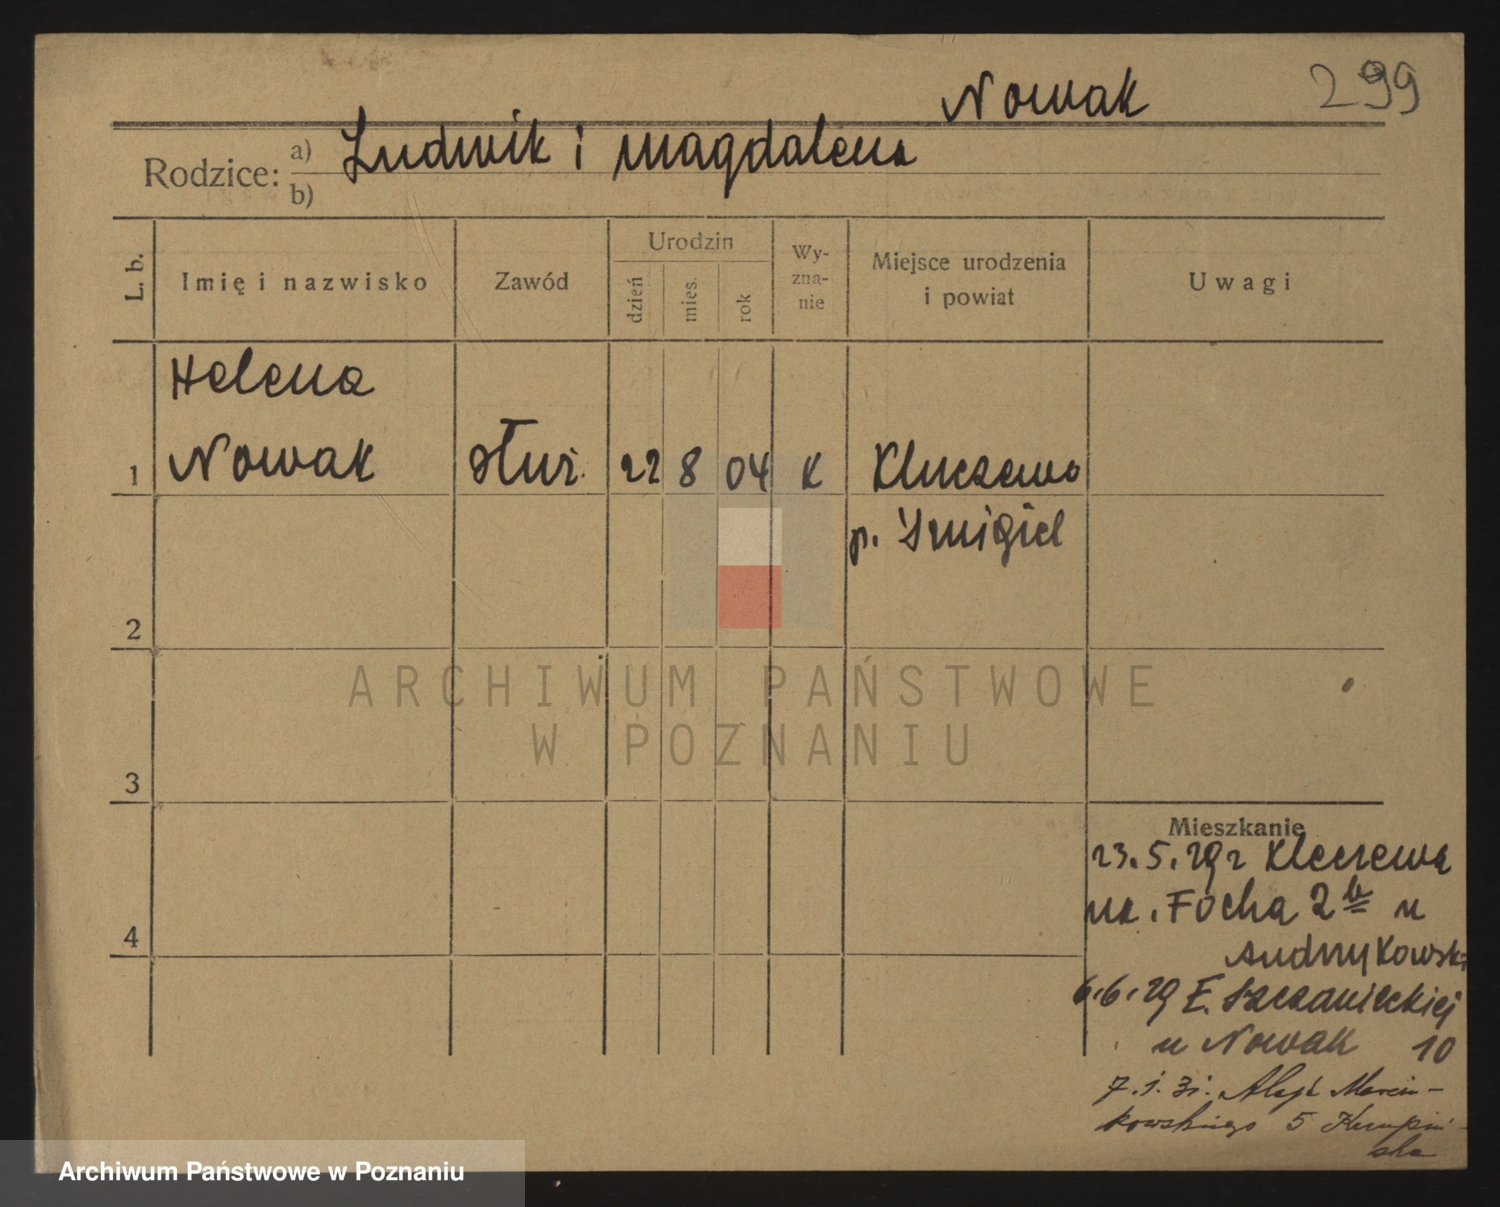 299
Nowak
Rodzice: a) Ludwik i Magdalena
b)
L. b.
Imię i nazwisko
Zawód
Urodzin
dzień
mies.
rok
Wy-
zna-
nie
Miejsce urodzenia
i powiat
Uwagi
Helena
1 Nowak służ. 22 8 04 K Kluczewo
p. Śmigiel
2
3
4
Mieszkanie
23.5.29 z Kluczewa
na. Focha 2 b u
Andrzykowski
6.6.29 E. Szczanieckiej
u Nowak 10
7.1.31. Aleje Marcin-
kowskiego 5 Kempiń-
ska
ARCHIWUM PAŃSTWOWE
W POZNANIU
Archiwum Państwowe w Poznaniu